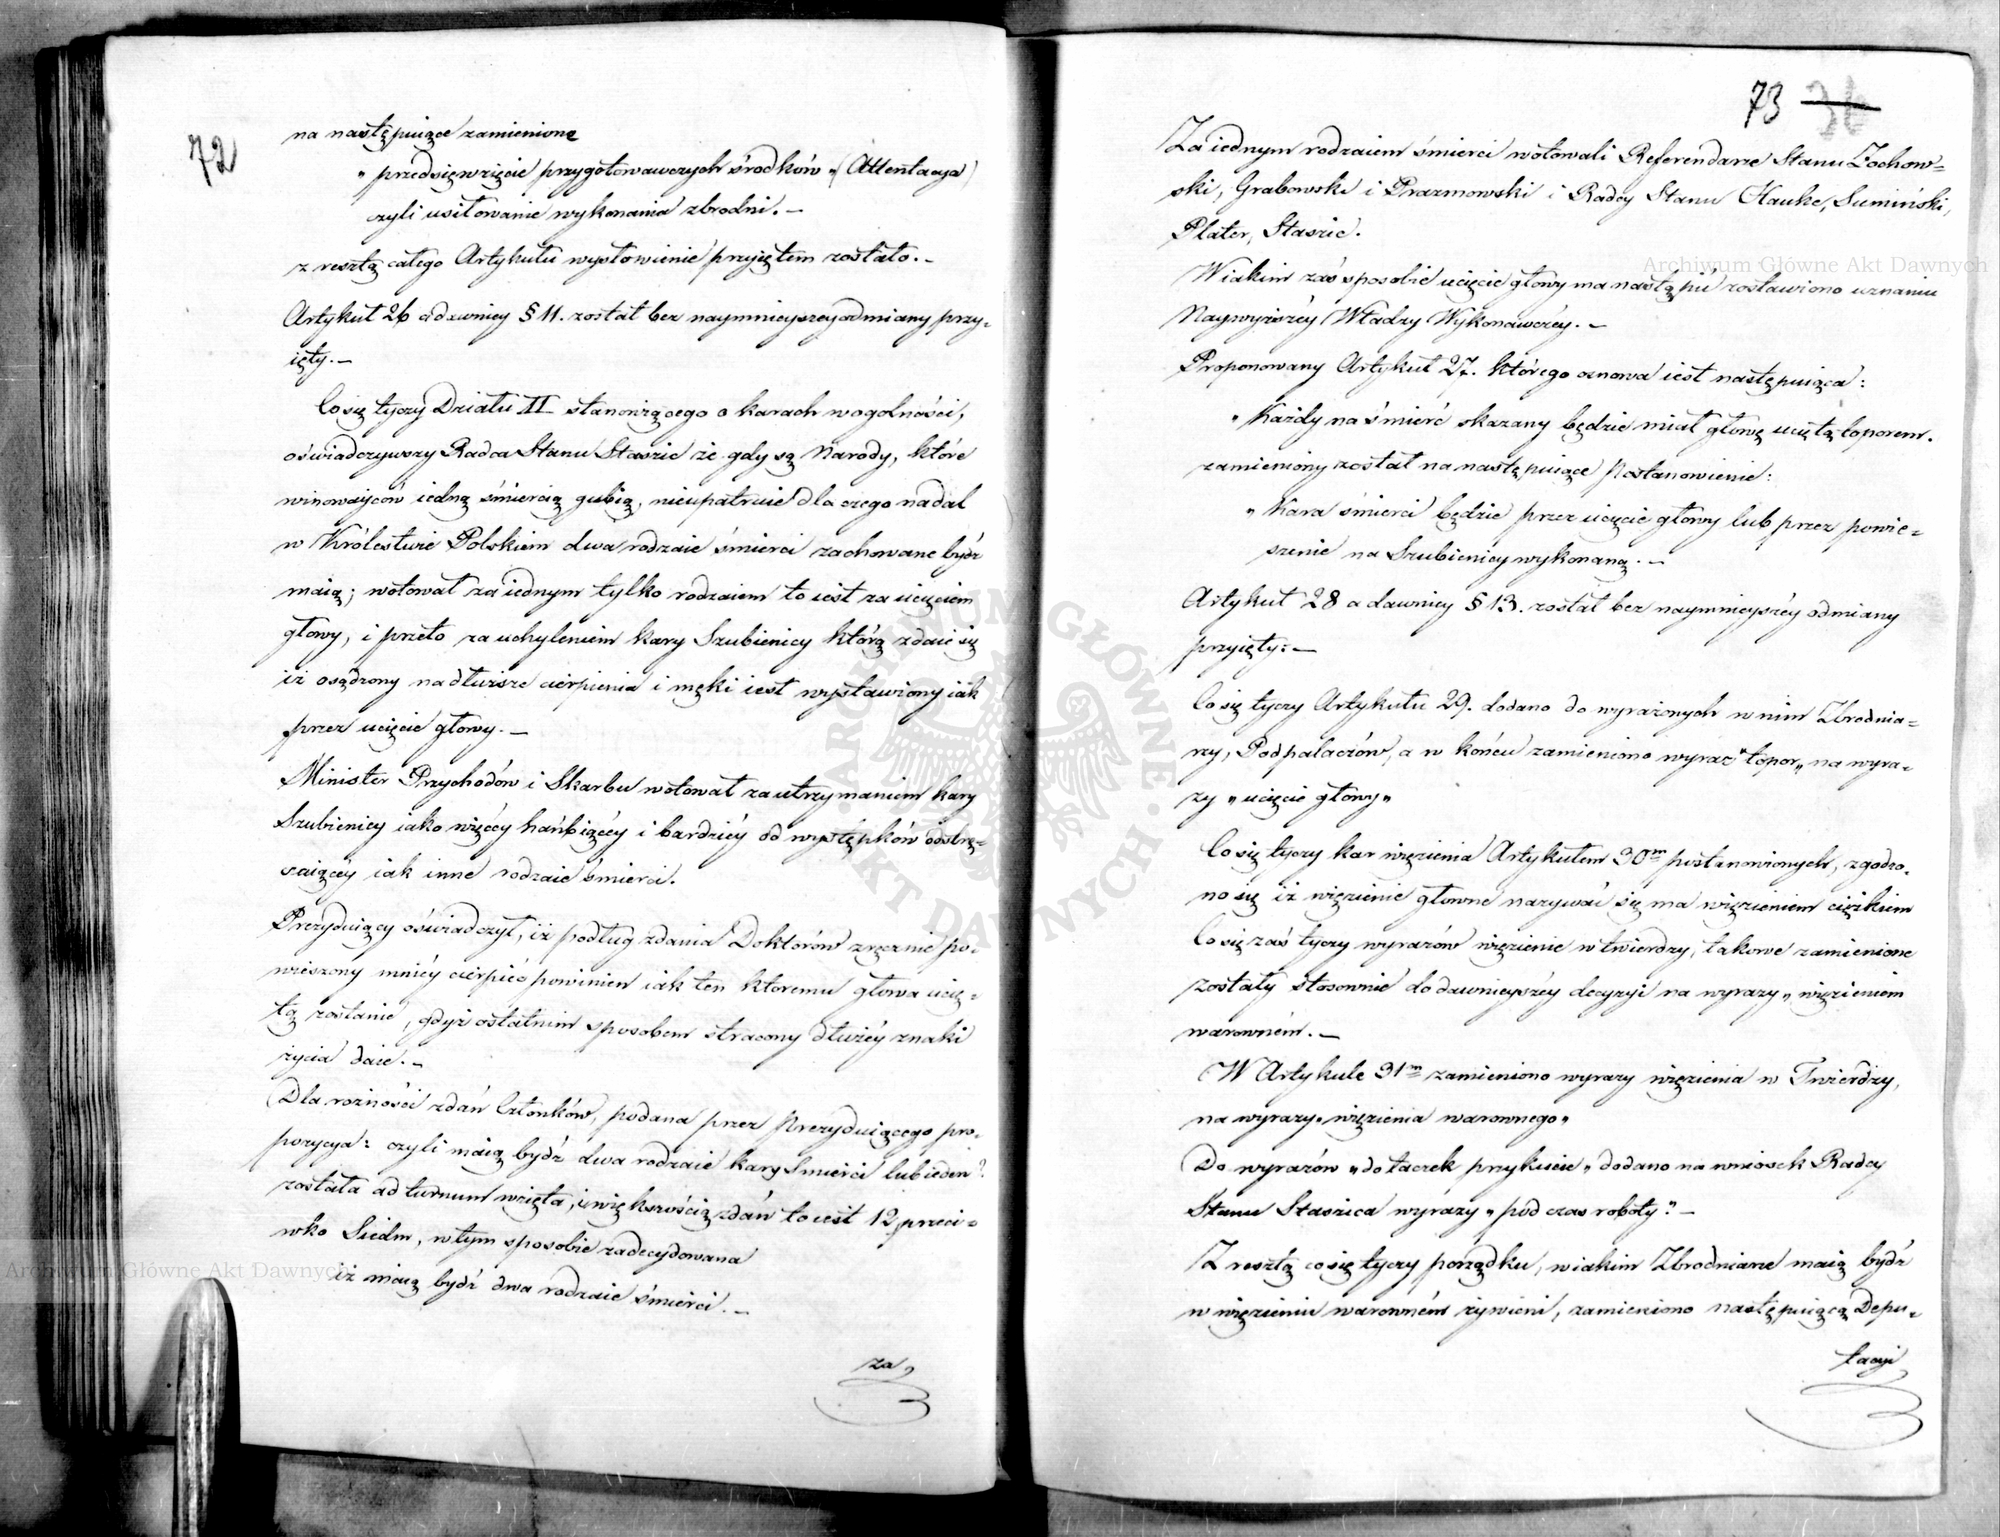 72
na następuiące zamienione
„ przedsięwzięcie przygotowawczych środków „ (Attentacya)
czyli usiłowanie wykonania zbrodni. –
z resztą całego Artykułu wysłowienie przyiętem zostało. –
Artykuł 26 a dawniey § 11. został bez naymnieyszey odmiany przy-
ięty. –
Co się tyczy Działu II stanowiącego o karach wogolności,
oświadczywszy Radca Stanu Staszic że gdy są Narody, które
winowayców iedną śmiercią gubią, nieupatruie dla czego nadal
w Królestwie Polskiem dwa rodzaie śmierci zachowane bydź
maią; wotował za iednym tylko rodzaiem to iest za ucięciem
głowy, i przeto za uchyleniem kary Szubienicy którą zdaie się
iż osądzony na dłuższe cierpienia i męki iest wystawiony iak
przez ucięcie głowy. –
Minister Przychodów i Skarbu wotował za utrzymaniem kary
Szubienicy iako więcéy hańbiącéy i bardziéy od występków odstrę-
czaiącéy iak inne rodzaie śmierci.
Prezyduiący oświadczył, iż podług zdania Doktorów zręcznie po-
wieszony mniéy cierpiéć powinien iak ten ktoremu głowa ucię-
tą zostanie, gdyż ostatnim sposobem stracony dłużéy znaki
życia daie. –
Dla rożności zdań Członków, podana przez Prezyduiącego pro-
pozycya: czyli maią bydź dwa rodzaie kary Smierci lub ieden?
została ad turnum wzięta, i większością zdań to iest 12, przeci-
wko Siedm, w tym sposobie zadecydowana
iż maią bydź dwa rodzaie śmierci. –
za
73 36
Za iednym rodzaiem śmierci wotowali Referendarze Stanu Zochow-
ski, Grabowski i Prazmowski i Radcy Stanu Hauke, Sumiński,
Plater, Staszic.
W iakim zaś sposobie ucięcie głowy ma nastąpić zostawiono uznaniu
Naywyższéy Władzy Wykonawczéy. –
Proponowany Artykuł 27. którego osnowa iest następuiąca:
„ Każdy na śmierć skazany będzie miał głowę uciętą toporem.
zamieniony został na następuiące Postanowienie:
„ Kara śmierci będzie przez ucięcie głowy lub przez powie-
szenie na Szubienicy wykonaną. –
Artykuł 28 a dawniey § 13. został bez naymnieyszéy odmiany
przyięty. –
Co się tyczy Artykułu 29. dodano do wyrażonych w nim Zbrodnia-
rzy, Podpalaczów, a w końcu zamieniono wyraz "topor„ na wyra-
zy „ ucięcie głowy„
Co się tyczy kar więzienia Artykułem 30m postanowionych, zgodzo-
no się iż więzienie główne nazywać się ma więzieniem ciężkim
Co się zaś tyczy wyrazów więzienie w twierdzy, takowe zamienione
zostały stosownie do dawnieyszéy decyzyi na wyrazy „ więzieniem
warowném. –
W Artykule 31m zamieniono wyrazy więzienia w Twierdzy,
na wyrazy „ więzienia warownego„
Do wyrazów „ do taczek przykucie „ dodano na wniosek Radcy
Stanu Staszica wyrazy „ pod czas roboty". –
Z resztą co się tyczy porządku, w iakim Zbrodniarze maią bydź
w więzieniu warowném żywieni, zamieniono następuiącą Depu-
tacyi
Archiwum Główne Akt Dawnych
Archiwum Główne Akt Dawnych
ARCHIWUM GŁÓWNE AKT DAWNYCH